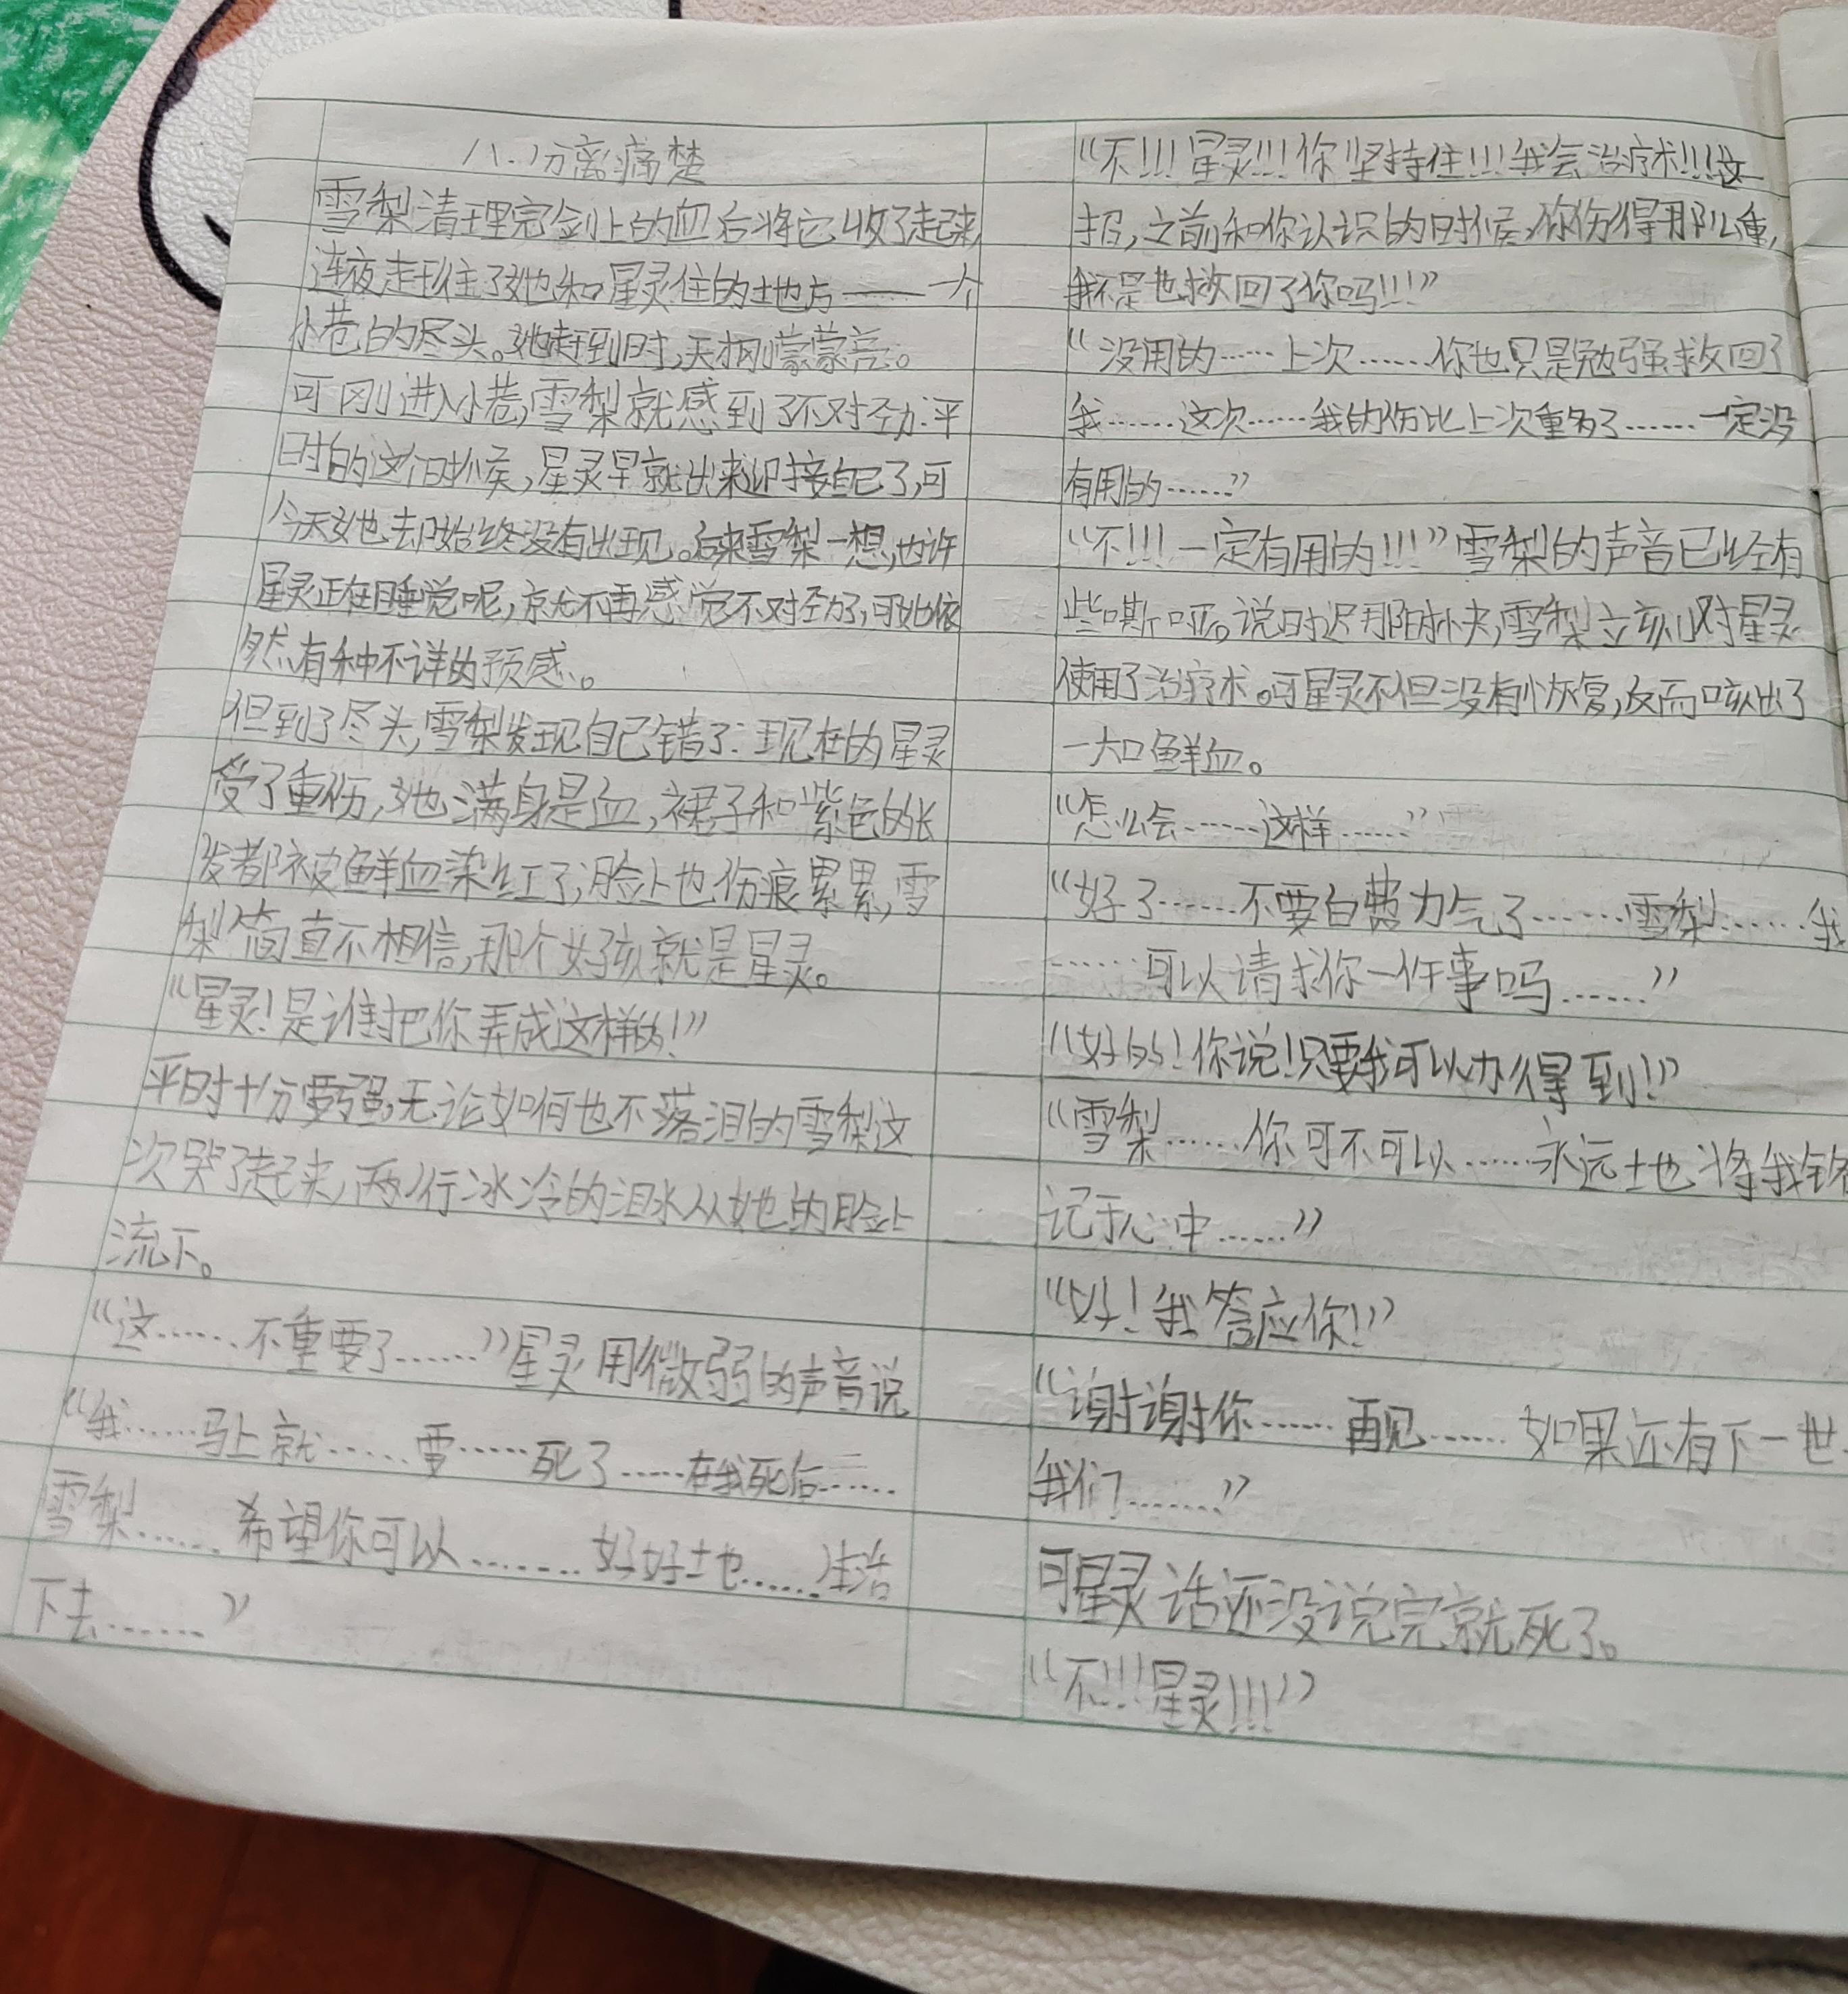 八、分离痛楚
雪梨清理完剑上的血后将它收了起来,
连夜赶往了她和星灵住的地方——一个
小巷的尽头。她赶到时,天刚蒙蒙亮。
可刚进入小巷,雪梨就感到了不对劲:平
时的这个时候,星灵早就出来迎接自己了,可
今天她却始终没有出现。后来雪梨一想,也许
星灵正在睡觉呢,就不再感觉不对劲了,可她依
然有种不详的预感。
但到了尽头,雪梨发现自己错了:现在的星灵
受了重伤,她满身是血,裙子和紫色的长
发都被鲜血染红了,脸上也伤痕累累,雪
梨简直不相信,那个女孩就是星灵。
“星灵!是谁把你弄成这样的!”
平时十分要强,无论如何也不落泪的雪梨这
次哭了起来,两行冰冷的泪水从她的脸上
流下。
“这……不重要了……”星灵用微弱的声音说
“我……马上就……要……死了……在我死后……
雪梨……希望你可以……好好地……生活
下去……”
“不!!!星灵!!!你坚持住!!!我会治疗术!!!这
招,之前和你认识的时候,你伤得那么重,
我不是也救回了你吗!!!”
“没用的……上次……你也只是勉强救回了
我……这次……我的伤比上次重多了……一定没
有用的……”
“不!!!一定有用的!!!”雪梨的声音已经有
些嘶哑。说时迟那时快,雪梨立刻对星灵
使用了治疗术。可星灵不但没有恢复,反而咳出了
一大口鲜血。
“怎么会……这样……”
“好了……不要白费力气了……雪梨……我
……可以请求你一件事吗……”
“好的!你说!只要我可以办得到!”
“雪梨……你可不可以……永远地将我铭
记于心中……”
“好!我答应你!”
“谢谢你……再见……如果还有下一世
我们……”
可星灵话还没说完就死了。
“不!!!星灵!!!”